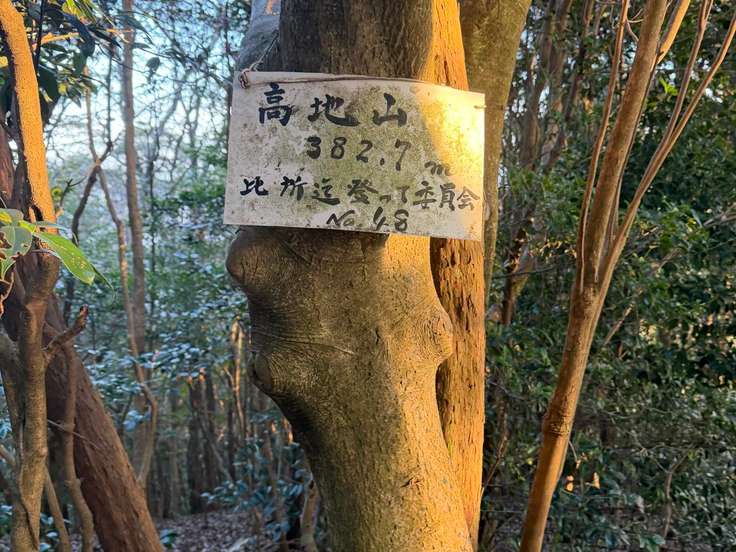 高地山
382.7m
比所迄登って委員会
No 48